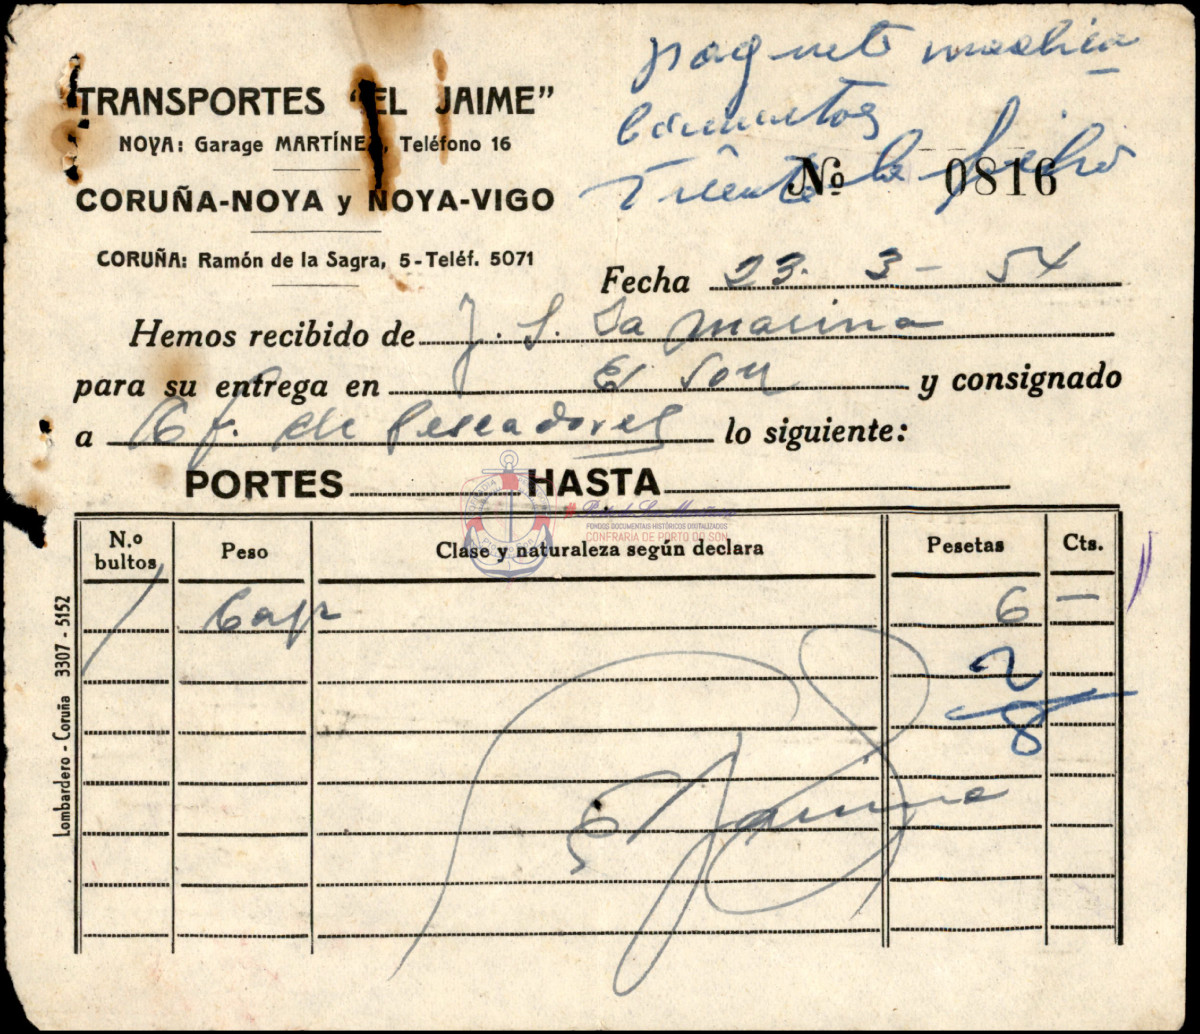 paquete medica
camentos
TRANSPORTES "EL JAIME"
NOYA: Garage MARTÍNEZ, Teléfono 16
Nº 0816
CORUÑA-NOYA y NOYA-VIGO
CORUÑA: Ramón de la Sagra, 5-Teléf. 5071
Fecha 23. 3 - 54
Hemos recibido de J. S. La Marina
para su entrega en El Son y consignado
a Cf. de Pescadores lo siguiente:
PORTES HASTA
FONDOS DOCUMENTAIS HISTÓRICOS DIGITALIZADOS
CONFRARÍA DE PORTO DO SON
N.o bultos Peso Clase y naturaleza según declara Pesetas Cts.
1 Caja 6 —
2
8
El Jaime
Lombardero - Coruña 3307 - 5152